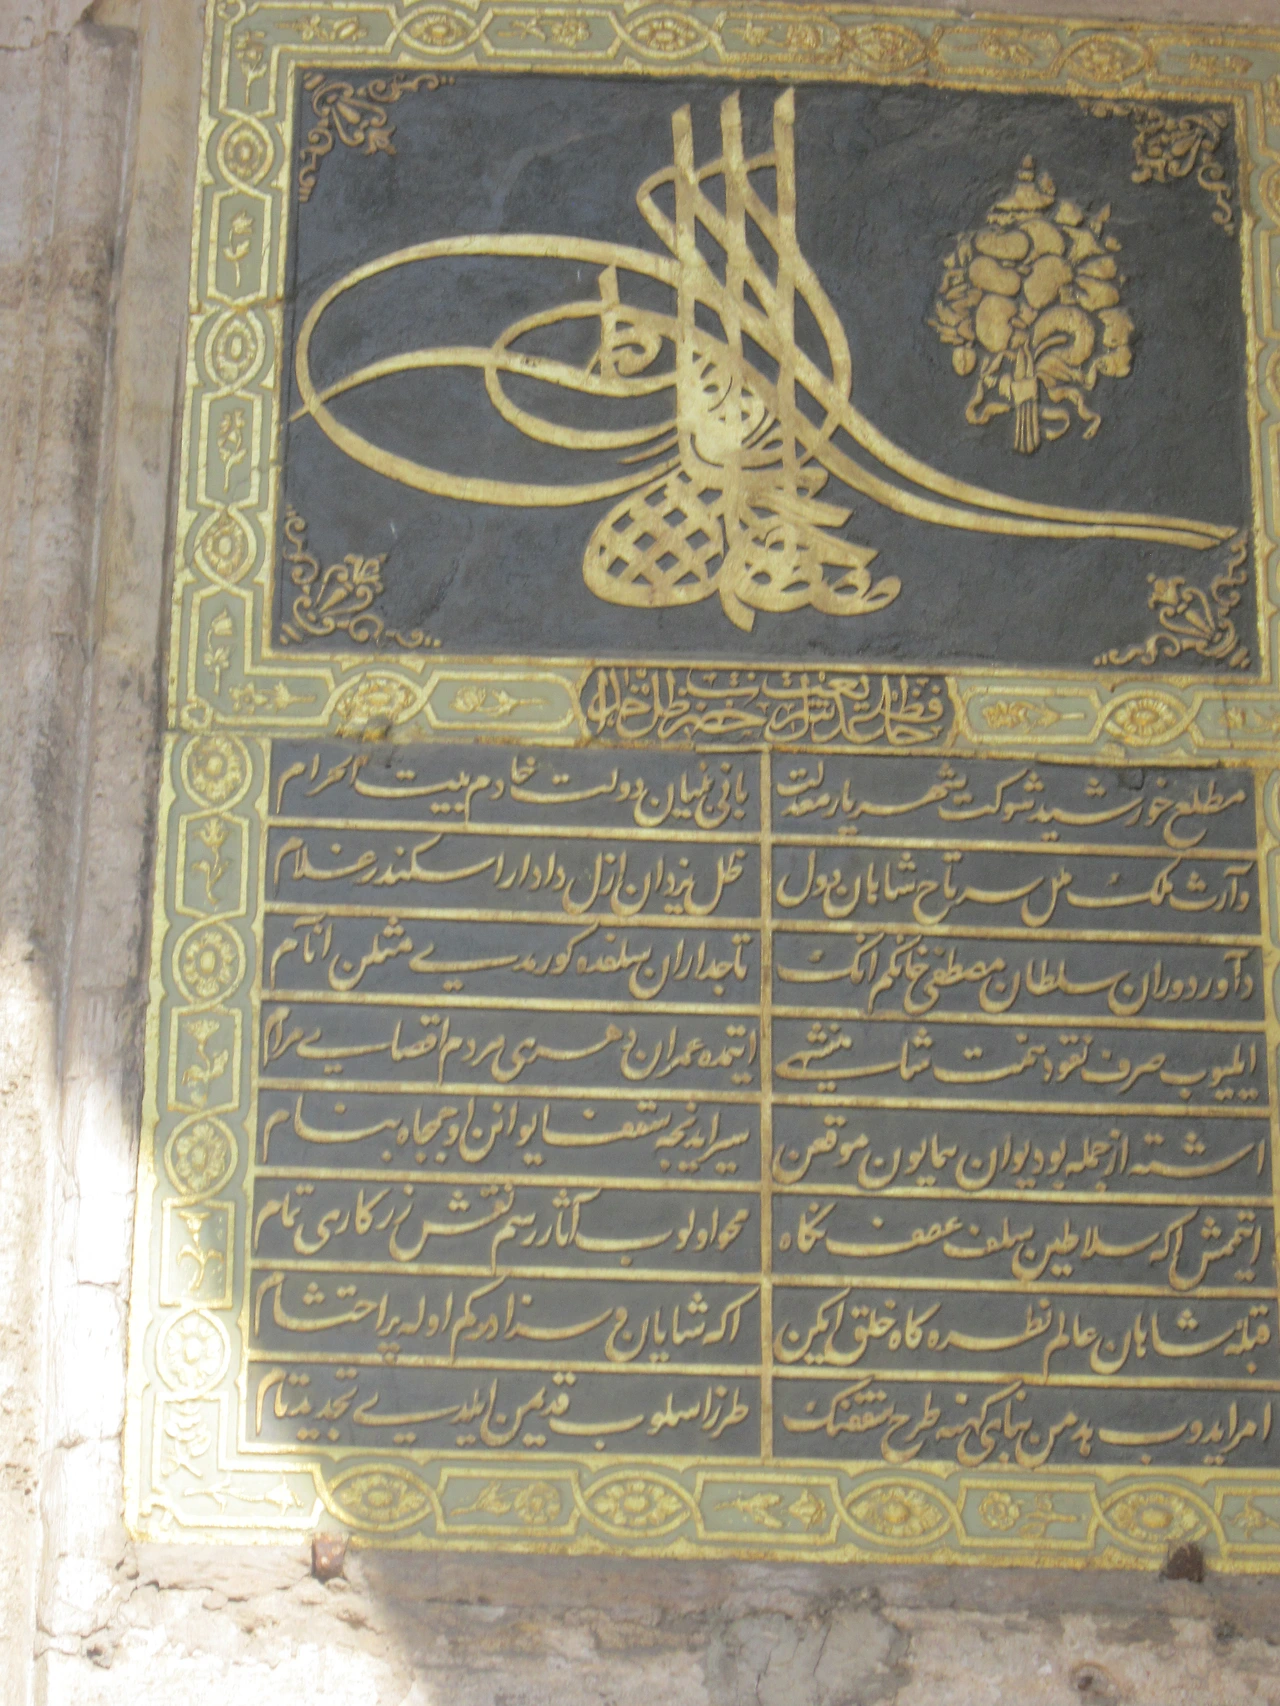 مطلع خورشید شوکت شهریار معدلت
بانئ بنیان دولت خادم بیت الحرام
وآرث ملک ملل سرتاج شاهان دول
ظل یزدان ازل دادار اسکندر غلام
دآور دوران سلطان مصطفی خانکم انک
تاجداران سلفده کورمدی مثلن انآم
ایلیوب صرف نقود همت شاهنشهی
ایتمده عمران دهری بردم اقصای مرام
اشته ازجمله بو دیوان همایون موقعن
سیر ایدنجه سقف ایوانن او جمجاه بنام
ایتمش اکه سلاطین سلف عطف نکاه
محو اولوب آثار رسم نقش زرکاری تمام
قبلهٔ شاهان عالم نظره کاه خلق ایکن
اکه شایان و سزا درکم اوله پر احتشام
امر ایدوب هدمن بنای کهنه طرح سقفنک
طرز اسلوب قدیمن ایلدی تجدید تام